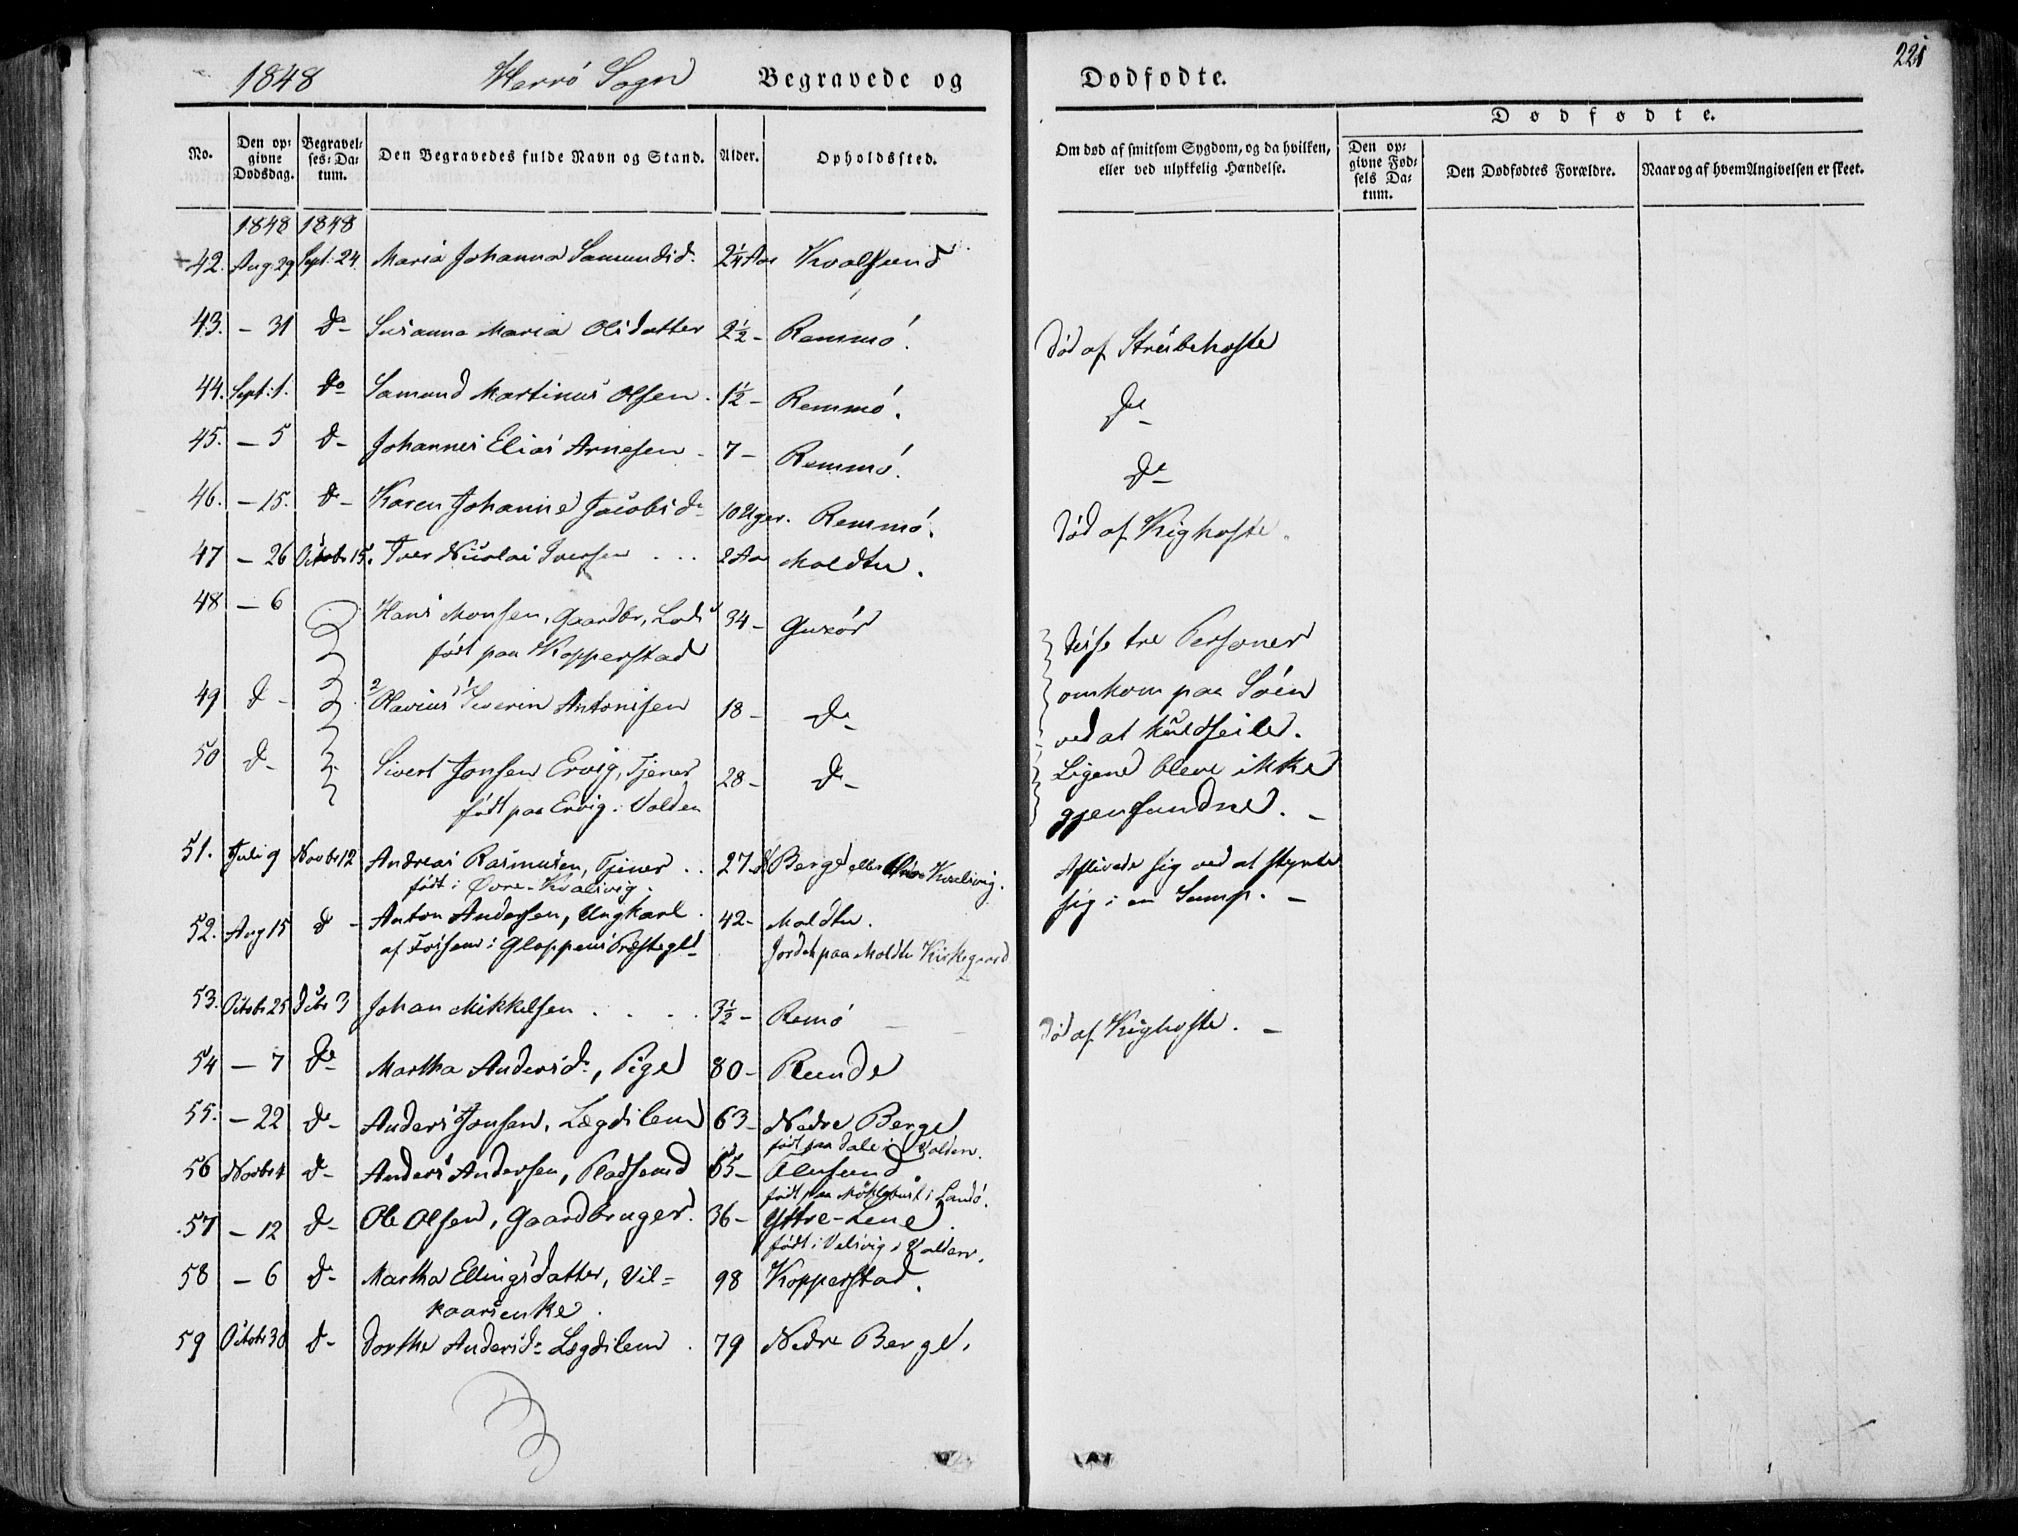 221
1848 Herrö Sogn Begravede og Dødfødte.
Dødfødte.
No. Den opgivne Dødsdag. Begravelses-Datum. Den Begravedes fulde Navn og Stand. Alder. Opholdssted. Om død af smitsom Sygdom, og da hvilken, eller ved ulykkelig Hændelse. Den opgivne Fødsels Datum. Den Dødfødtes Forældre. Naar og af hvem Angivelsen er skeet.
1848 1848
42. Aug 29 Sept: 24. Maria Johanna Samundsd. 2¼ Aar Kvalsund
43. - 31 do- Susanna Maria Olsdatter 2½- Remmö.
Död af Strübehoste
44. Sept: 1. do- Samund Martinus Olsen. 1½- Remmö.
do-
45. - 5 d- Johannes Elias Arnesen - 7- Remmö.
do-
46. - 15. d- Karen Johanne Jacobsd- 10 Uger. Remmö.
Död af Kighoste.
47 - 26 Octobr 15. Iver Nicolai Iversen . . . 2 Aar Moldtu.
48 - 6 Hans Monsen, Gaardbr, Lods 34- Gurör
født paa Kopperstad
Disse tre Personer
49 d- Olavius Severin Antonisen 18- d-
omkom paa Söen
ved at kuldseile.
50 d- Sivert Jonsen Ervig, Tjener 28- d-
født paa Ervig i Volden
Ligene bleve ikke
gjenfundne. -
51. Juli 9 Novbr 12 Andreas Rasmusen, Tjener . . 27- Berge eller Övre Kvalsvig.
født i Øvre-Kvalsvig.
Aflivede sig ved at styrte
sig i en Sump. -
52. Aug 15 d- Anton Andersen, Ungkarl. 42- Moldtu.
af i Gloppens Præstegld- Jordet paa Moldtu Kirkegaard
53. Octobr 25 Dcbr 3 Johan Mikkelsen . . . . 3½- Remö
Död af Kighoste. -
54 - 7 do- Martha Andersd-, Pige 80- Runde
55. - 22 d- Anders Jonsen, Lægdslem 63- Nedre Berge
født paa Dale i Volden.
56 Novbr 4 d- Anders Andersen, Pladsmd 65- Alusund
født paa Möklebust i Sandö.
57 - 12 d- Ole Olsen, Gaardbruger. 36- Yttre-Leine
født i Velsvig i Volden.
58 - 6 d- Martha Ellingsdatter, Vil= 98 Kopperstad.
kaarsenke.
59 Octobr 30 d- Dorthe Andersd- Lægdslem . 79 Nedre Berge.